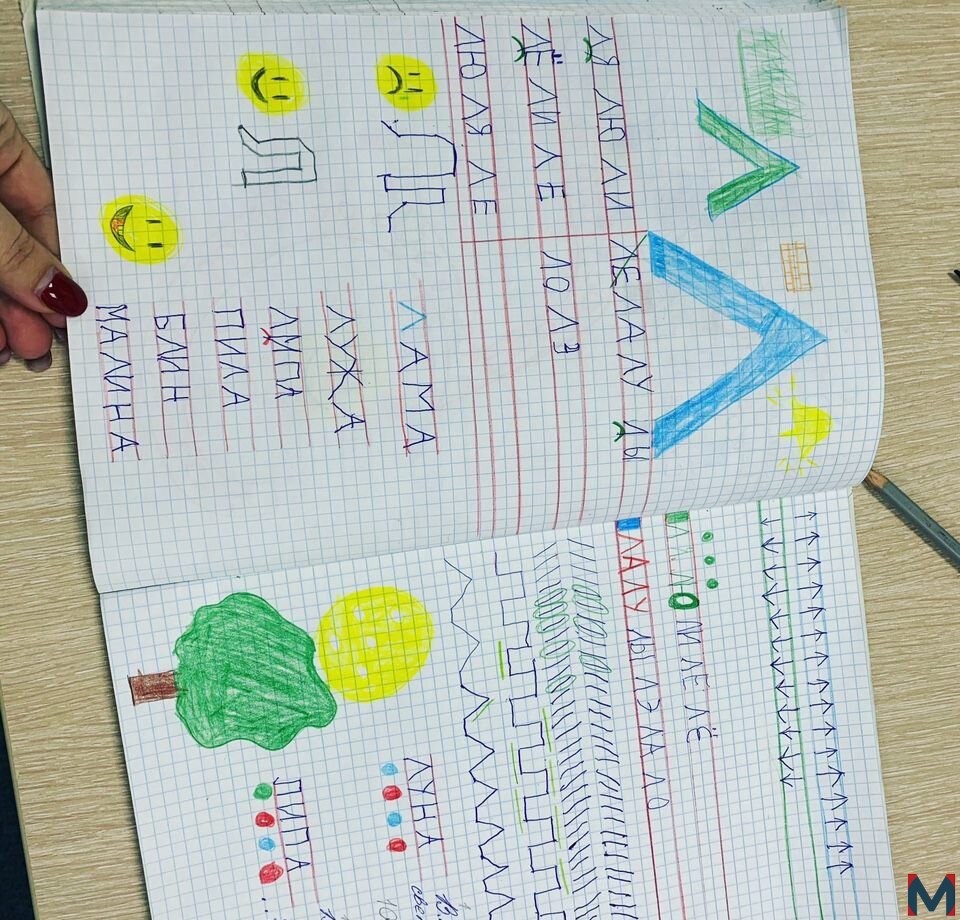 ЛЯ ЛЮ ЛИ ЛЕ ЛА ЛУ ЛЫ
ЛЁ ЛИ ЛЕ ЛО ЛЭ
ЛЮ ЛЯ ЛЕ
ЛАМА
ЛУЖА
ЛИПА
ПИЛА
БЛИН
МАЛИНА
ЛЮ ЛИ ЛЕ ЛЁ
ЛА ЛУ ЛЫ ЛЭ ЛА ЛО
ЛУНА
ЛИПА
M